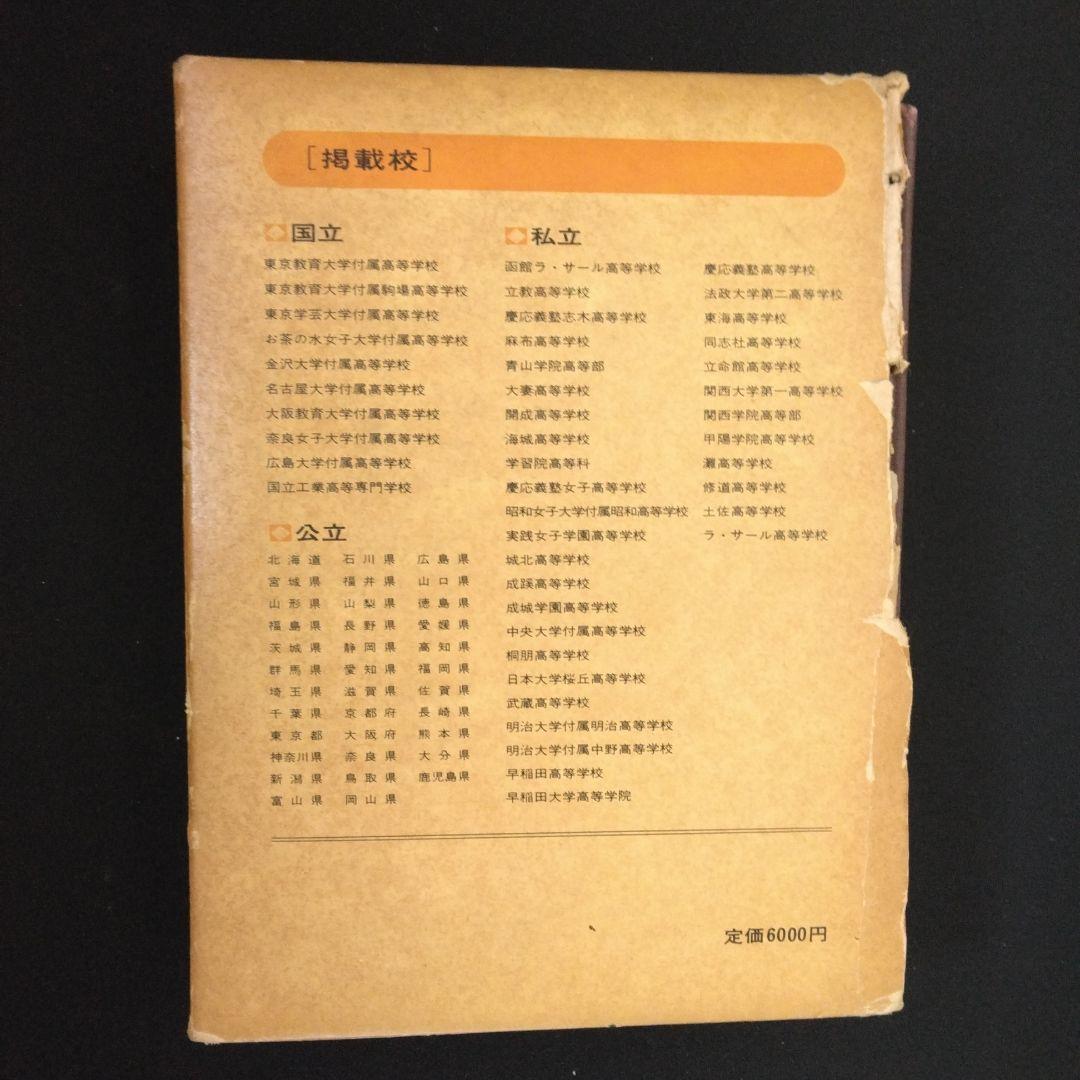 ［掲載校］
国立
東京教育大学付属高等学校
東京教育大学付属駒場高等学校
東京学芸大学付属高等学校
お茶の水女子大学付属高等学校
金沢大学付属高等学校
名古屋大学付属高等学校
大阪教育大学付属高等学校
奈良女子大学付属高等学校
広島大学付属高等学校
国立工業高等専門学校
公立
北海道 石川県 広島県
宮城県 福井県 山口県
山形県 山梨県 徳島県
福島県 長野県 愛媛県
茨城県 静岡県 高知県
群馬県 愛知県 福岡県
埼玉県 滋賀県 佐賀県
千葉県 京都府 長崎県
東京都 大阪府 熊本県
神奈川県 奈良県 大分県
新潟県 鳥取県 鹿児島県
富山県 岡山県
私立
函館ラ・サール高等学校
立教高等学校
慶応義塾志木高等学校
麻布高等学校
青山学院高等部
大妻高等学校
開成高等学校
海城高等学校
学習院高等科
慶応義塾女子高等学校
昭和女子大学付属昭和高等学校
実践女子学園高等学校
城北高等学校
成蹊高等学校
成城学園高等学校
中央大学付属高等学校
桐朋高等学校
日本大学桜丘高等学校
武蔵高等学校
明治大学付属明治高等学校
明治大学付属中野高等学校
早稲田高等学校
早稲田大学高等学院
慶応義塾高等学校
法政大学第二高等学校
東海高等学校
同志社高等学校
立命館高等学校
関西大学第一高等学校
関西学院高等部
甲陽学院高等学校
灘高等学校
修道高等学校
土佐高等学校
ラ・サール高等学校
定価6000円